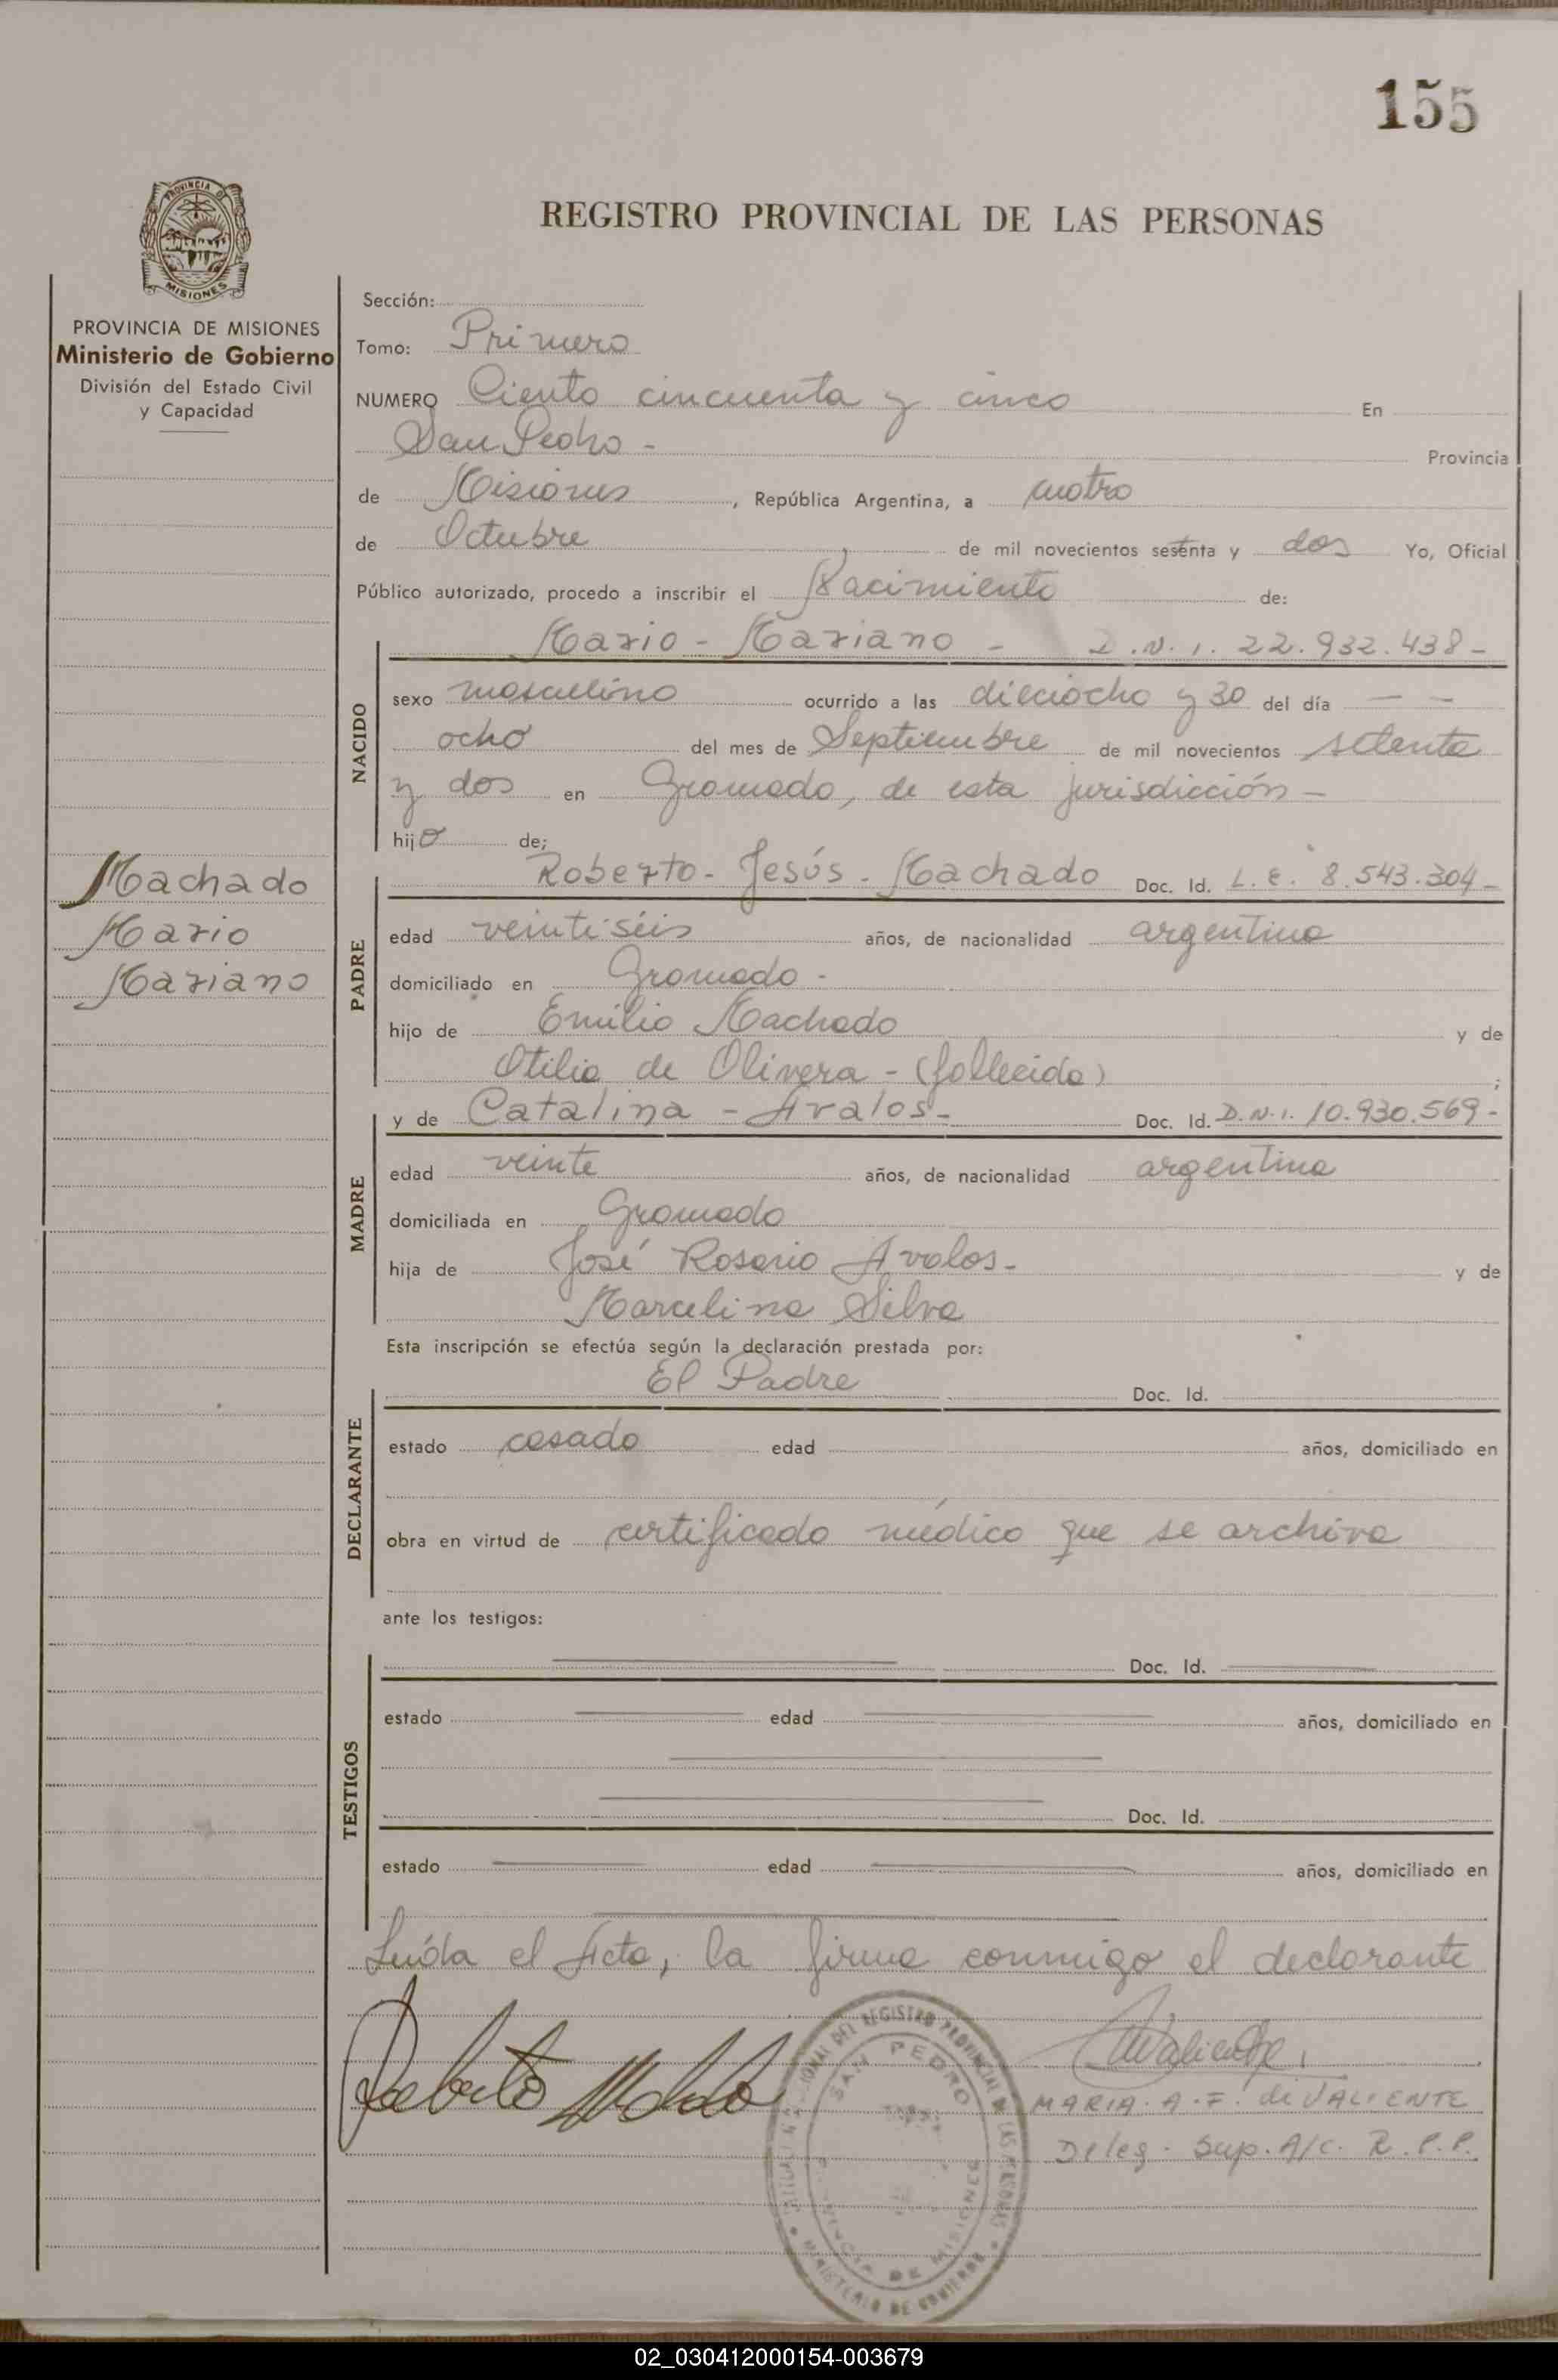 155
PROVINCIA DE
MISIONES
REGISTRO PROVINCIAL DE LAS PERSONAS
PROVINCIA DE MISIONES
Ministerio de Gobierno
División del Estado Civil
y Capacidad
Machado
Mario
Mariano
Sección:
Tomo: Primero
NUMERO Ciento cincuenta y cinco En
San Pedro - Provincia
de Misiones, República Argentina, a cuatro
de Octubre de mil novecientos sesenta y dos Yo, Oficial
Público autorizado, procedo a inscribir el Nacimiento de:
Mario - Mariano - D.N.I. 22.932.438-
NACIDO
sexo masculino ocurrido a las dieciocho y 30 del día - -
ocho del mes de Septiembre de mil novecientos setenta
y dos en Gramado, de esta jurisdicción -
hijo de;
Roberto - Jesús - Machado Doc. Id. L.E. 8.543.304-
PADRE
edad veintiséis años, de nacionalidad argentina
domiciliado en Gramado -
hijo de Emilio Machado y de
Otilia de Olivera - (fallecida) ;
y de Catalina - Avalos - Doc. Id. D.N.I. 10.930.569-
MADRE
edad veinte años, de nacionalidad argentina
domiciliada en Gramado
hija de José Rosario Avalos - y de
Marcelina Silva
Esta inscripción se efectúa según la declaración prestada por:
El Padre Doc. Id.
DECLARANTE
estado casado edad años, domiciliado en
obra en virtud de certificado médico que se archiva
ante los testigos:
Doc. Id.
TESTIGOS
estado edad años, domiciliado en
Doc. Id.
estado edad años, domiciliado en
Leída el Acta, la firma conmigo el declarante
Roberto
Valiente
MARIA. A. F. de VALIENTE
Deleg. Sup. A/C. R.P.P.
DEL REGISTRO PROVINCIAL DE LAS PERSONAS
SAN PEDRO
PROVINCIA DE MISIONES
MINISTERIO DE GOBIERNO
02_030412000154-003679